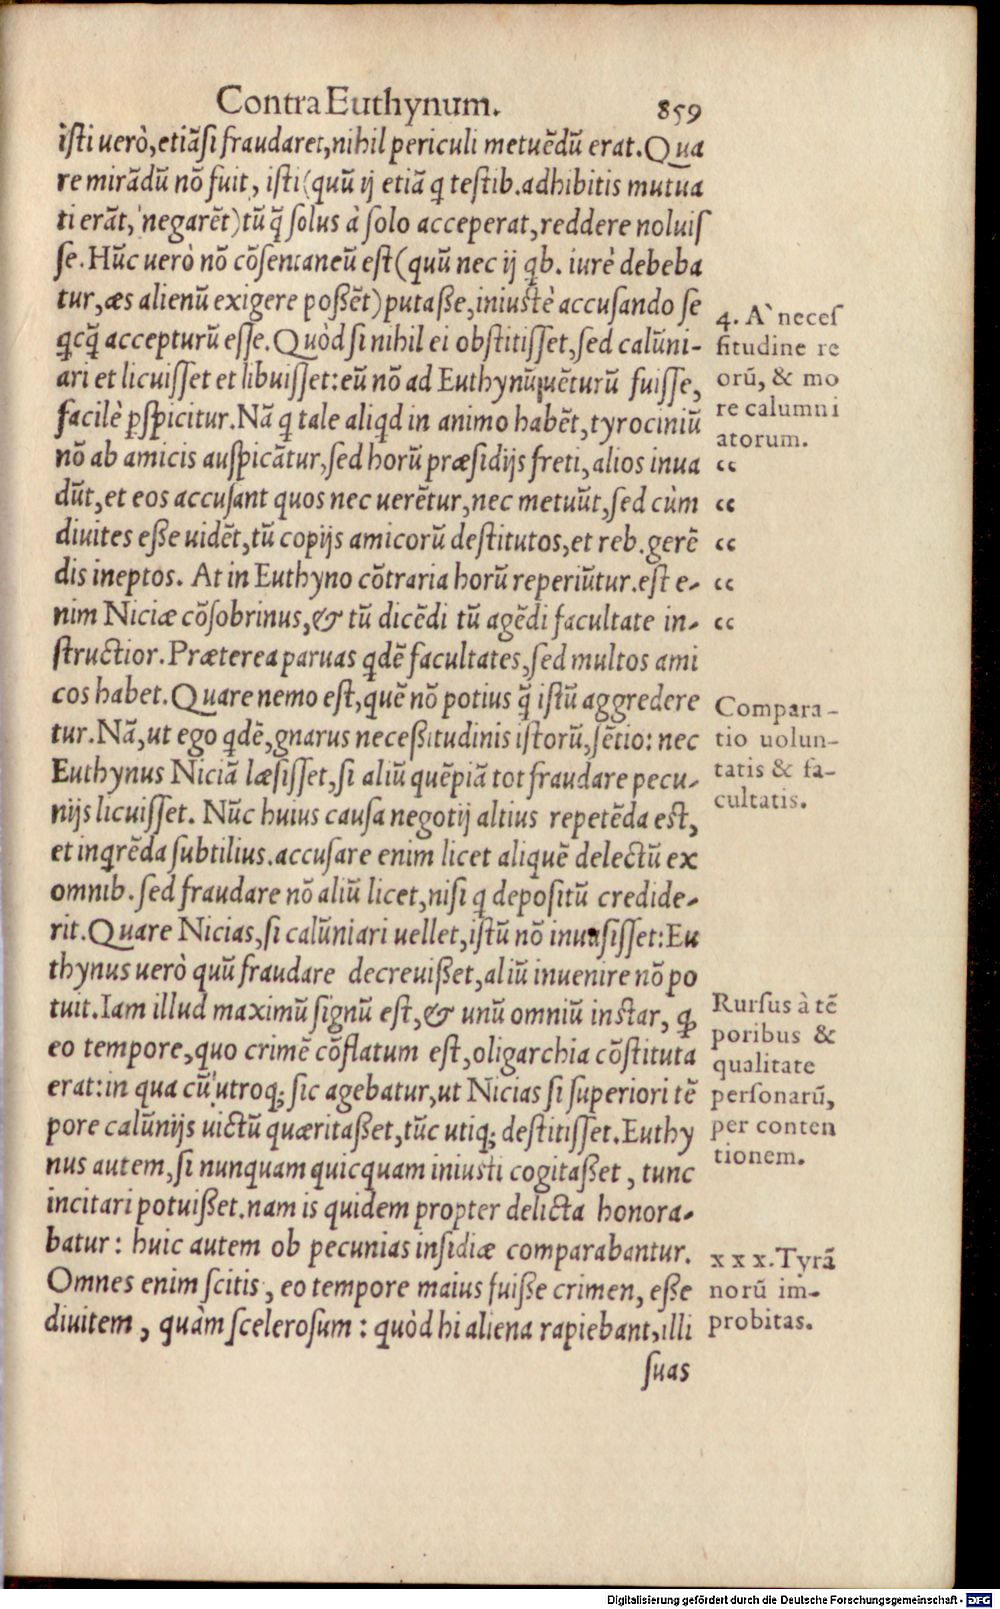 Contra Euthynum. 859
isti uerò, etiãsi fraudaret, nihil periculi metuẽdũ erat. Qua
re mirãdũ nõ fuit, isti (quũ ij etiã q̃ testib. adhibitis mutua
ti erãt, negarẽt) tũ q̃ solus à solo acceperat, reddere noluis
se. Hũc uerò nõ cõsentaneũ est (quũ nec ij qb. iurè debeba
tur, æs alienũ exigere possẽt) putasse, iniustè accusando se
qcq̃ accepturũ esse. Quòd si nihil ei obstitisset, sed calũni-
ari et licuisset et libuisset: eũ nõ ad Euthynũ uẽturũ fuisse,
facilè pspicitur. Nã q tale aliqd in animo habẽt, tyrociniũ
nõ ab amicis auspicãtur, sed horũ præsidijs freti, alios inua
dũt, et eos accusant quos nec uerẽtur, nec metuũt, sed cùm
diuites esse uidẽt, tũ copijs amicorũ destitutos, et reb. gerẽ
dis ineptos. At in Euthyno cõtraria horũ reperiũtur. est e-
nim Niciæ cõsobrinus, & tũ dicẽdi tũ agẽdi facultate in-
structior. Præterea paruas qdẽ facultates, sed multos ami
cos habet. Quare nemo est, quẽ nõ potius q̃ istũ aggredere
tur. Nã, ut ego qdẽ, gnarus necessitudinis istorũ, sẽtio: nec
Euthynus Niciã læsisset, si aliũ quẽpiã tot fraudare pecu-
nijs licuisset. Nũc huius causa negotij altius repetẽda est,
et inqrẽda subtilius. accusare enim licet aliquẽ delectũ ex
omnib. sed fraudare nõ aliũ licet, nisi q depositũ credide-
rit. Quare Nicias, si calũniari uellet, istũ nõ inuasisset: Eu
thynus uerò quũ fraudare decreuisset, aliũ inuenire nõ po
tuit. Iam illud maximũ signũ est, & unũ omniũ instar, q̃
eo tempore, quo crimẽ cõflatum est, oligarchia cõstituta
erat: in qua cũ utroq; sic agebatur, ut Nicias si superiori tẽ
pore calũnijs uictũ quæritasset, tũc utiq; destitisset. Euthy
nus autem, si nunquam quicquam iniusti cogitasset, tunc
incitari potuisset. nam is quidem propter delicta honora-
batur: huic autem ob pecunias insidiæ comparabantur.
Omnes enim scitis, eo tempore maius fuisse crimen, esse
diuitem, quàm scelerosum: quòd hi aliena rapiebant, illi
suas
4. A` neces
situdine re
orũ, & mo
re calumni
atorum.
“
“
“
“
“
Compara-
tio uolun-
tatis & fa-
cultatis.
Rursus à tẽ
poribus &
qualitate
personarũ,
per conten
tionem.
xxx. Tyrã
norũ im-
probitas.
Digitalisierung gefördert durch die Deutsche Forschungsgemeinschaft - DFG